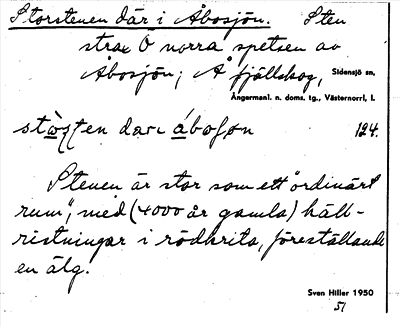 Storstenen där i Åbosjön. Sten
strax Ö norra spetsen av
Åbosjön; Å fjällskog, Sidensjö sn,
Ångermanl. n. doms. tg., Västernorrl. l.
124.
Stenen är stor som ett "ordinärt
rum", med (4000 år gamla) häll-
ristningar i rödkrita, föreställande
en älg.
Sven Hiller 1950
51